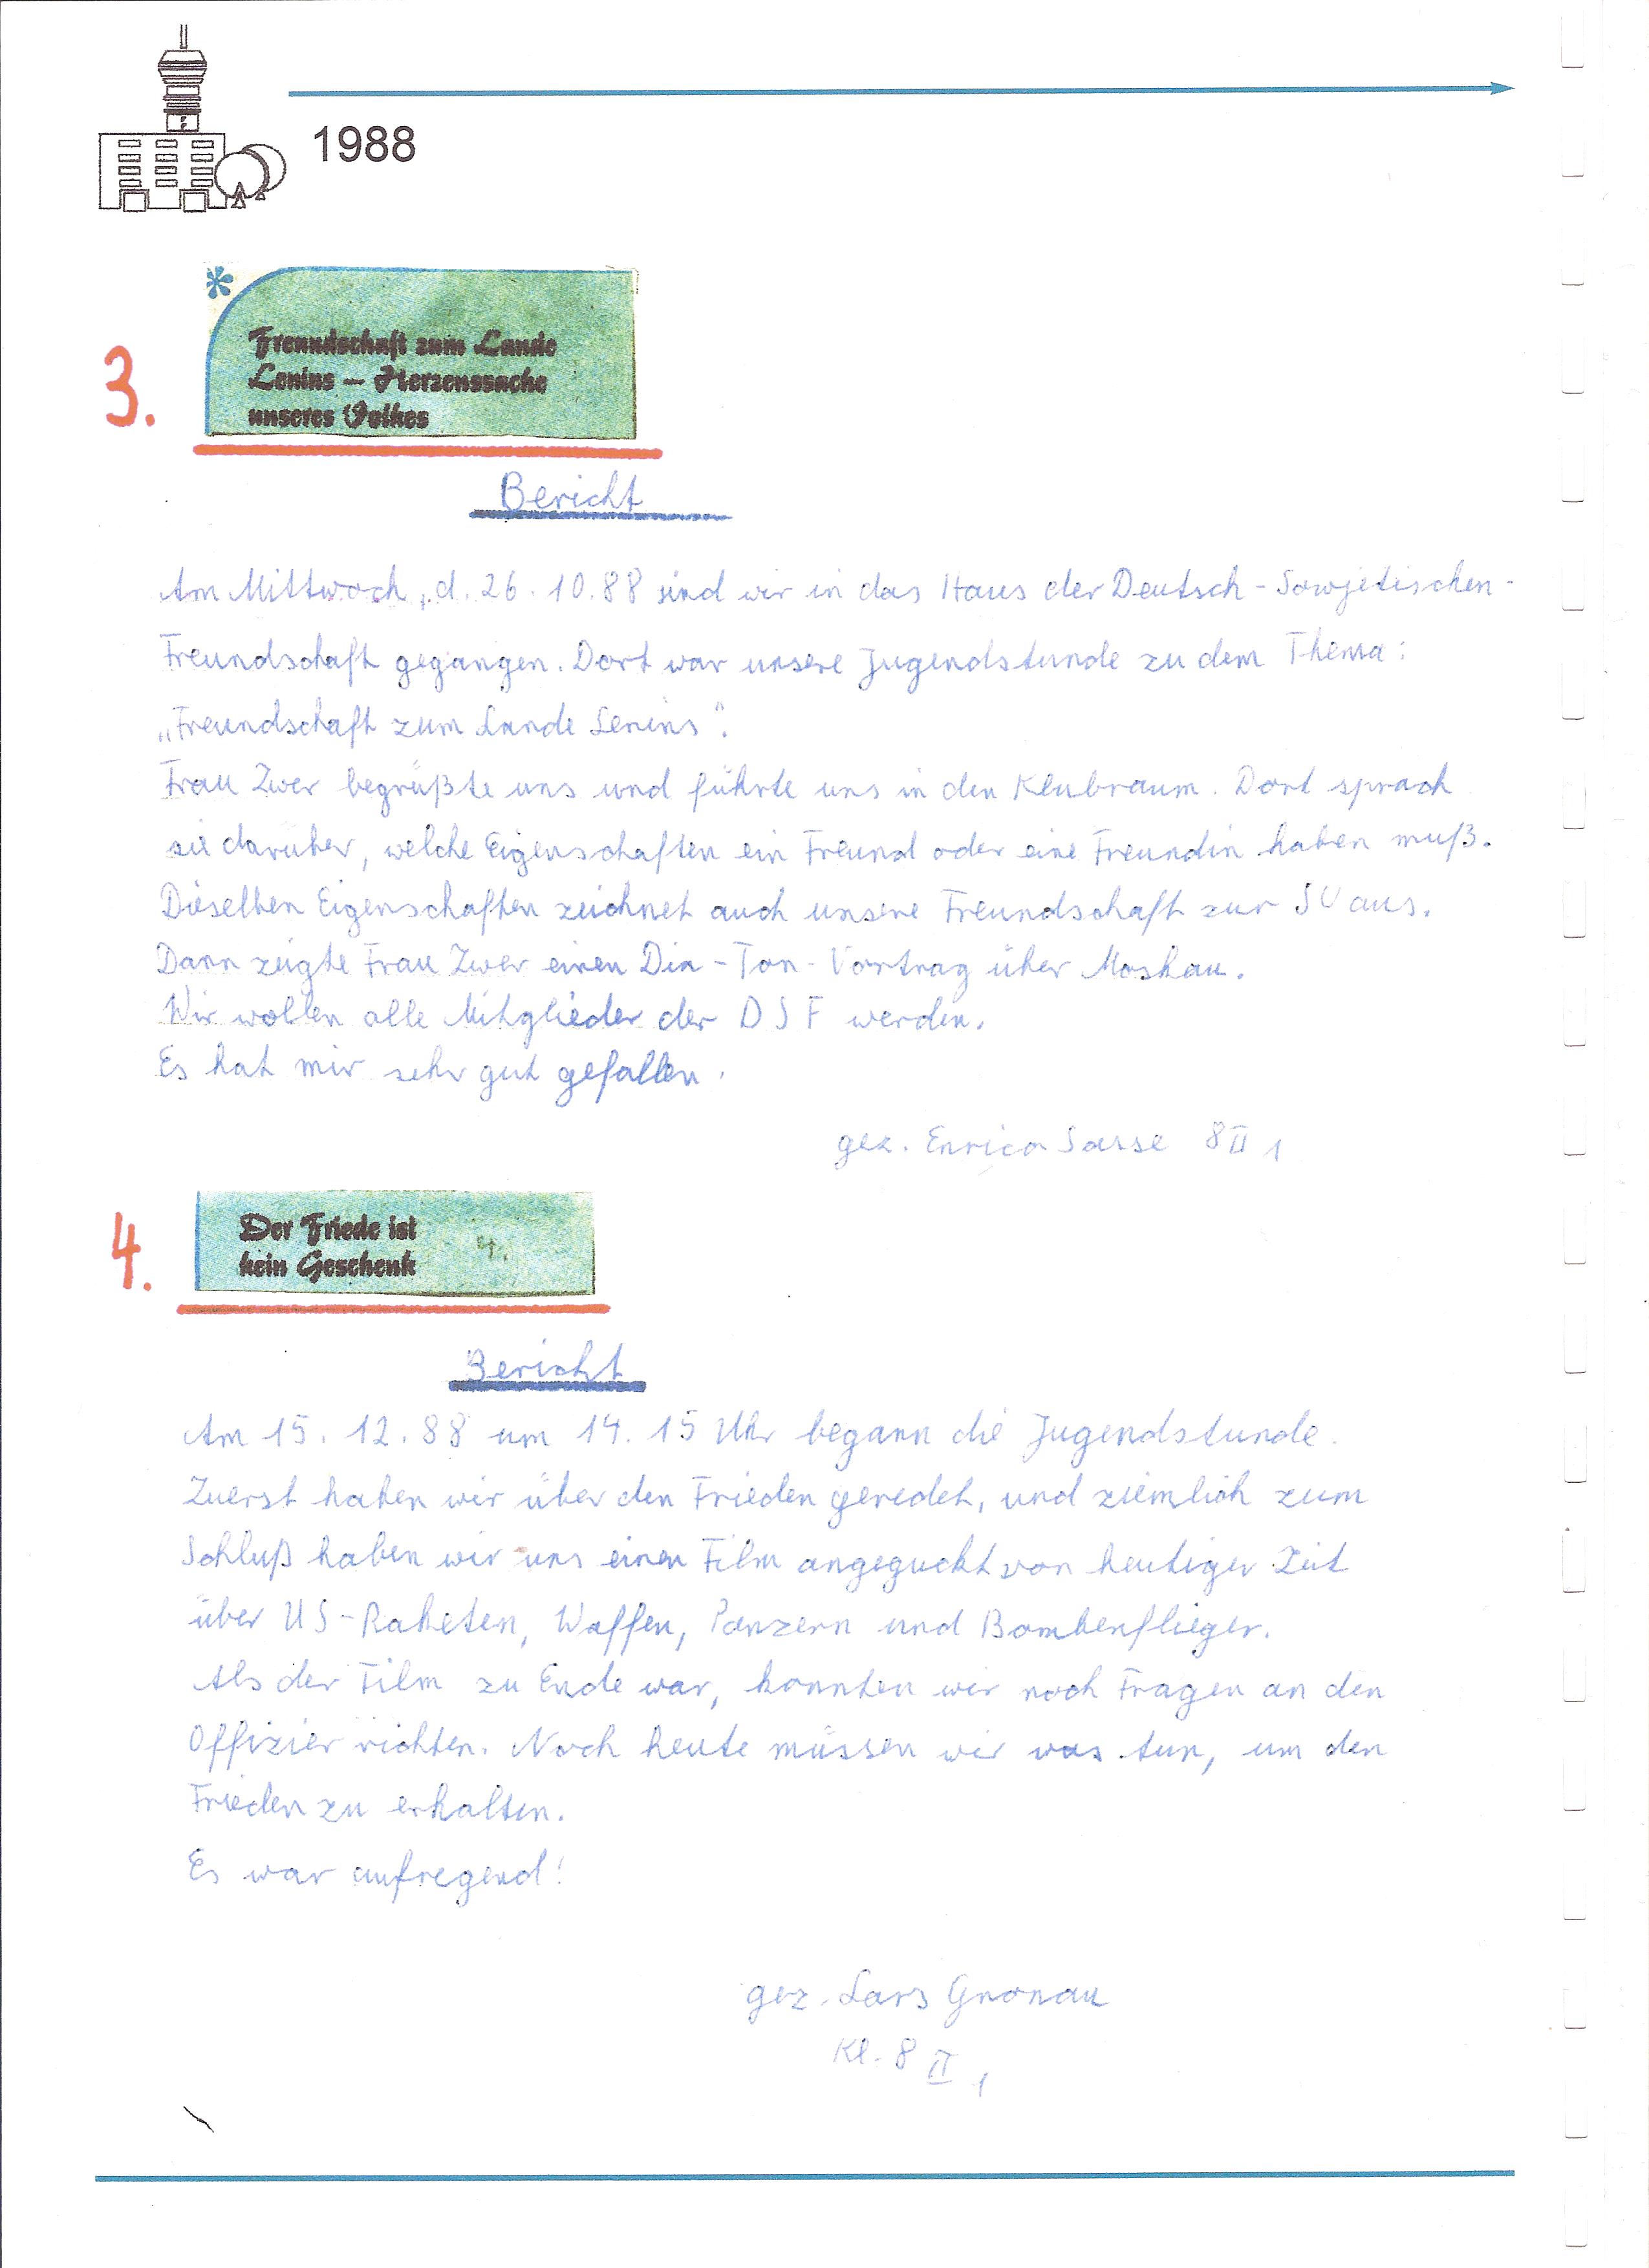 1988
3.
Freundschaft zum Lande
Lenins – Herzenssache
unseres Volkes
Bericht
Am Mittwoch, d. 26.10.88 sind wir in das Haus der Deutsch-Sowjetischen-
Freundschaft gegangen. Dort war unsere Jugendstunde zu dem Thema:
„Freundschaft zum Lande Lenins".
Frau Zwer begrüßte uns und führte uns in den Klubraum. Dort sprach
sie darüber, welche Eigenschaften ein Freund oder eine Freundin haben muß.
Dieselben Eigenschaften zeichnet auch unsere Freundschaft zur SU aus.
Dann zeigte Frau Zwer einen Dia-Ton-Vortrag über Moskau.
Wir wollen alle Mitglieder der DSF werden.
Es hat mir sehr gut gefallen.
gez. Enrico Sasse 8 II 1
4.
Der Friede ist
kein Geschenk
4.
Bericht
Am 15.12.88 um 14.15 Uhr begann die Jugendstunde.
Zuerst haben wir über den Frieden geredet, und ziemlich zum
Schluß haben wir uns einen Film angeguckt von heutiger Zeit
über US-Raketen, Waffen, Panzern und Bombenflieger.
Als der Film zu Ende war, konnten wir noch Fragen an den
Offizier richten. Noch heute müssen wir was tun, um den
Frieden zu erhalten.
Es war aufregend!
gez. Lars Gronau
Kl. 8 II 1